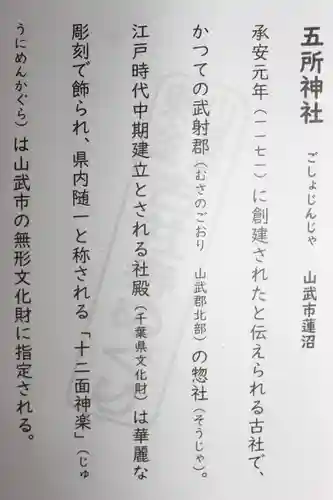 五所神社　ごしょじんじゃ　山武市蓮沼
承安元年（一一七一）に創建されたと伝えられる古社で、
かつての武射郡（むさのごおり　山武郡北部）の惣社（そうじゃ）。
江戸時代中期建立とされる社殿（千葉県文化財）は華麗な
彫刻で飾られ、県内随一と称される「十二面神楽」（じゅ
うにめんかぐら）は山武市の無形文化財に指定される。